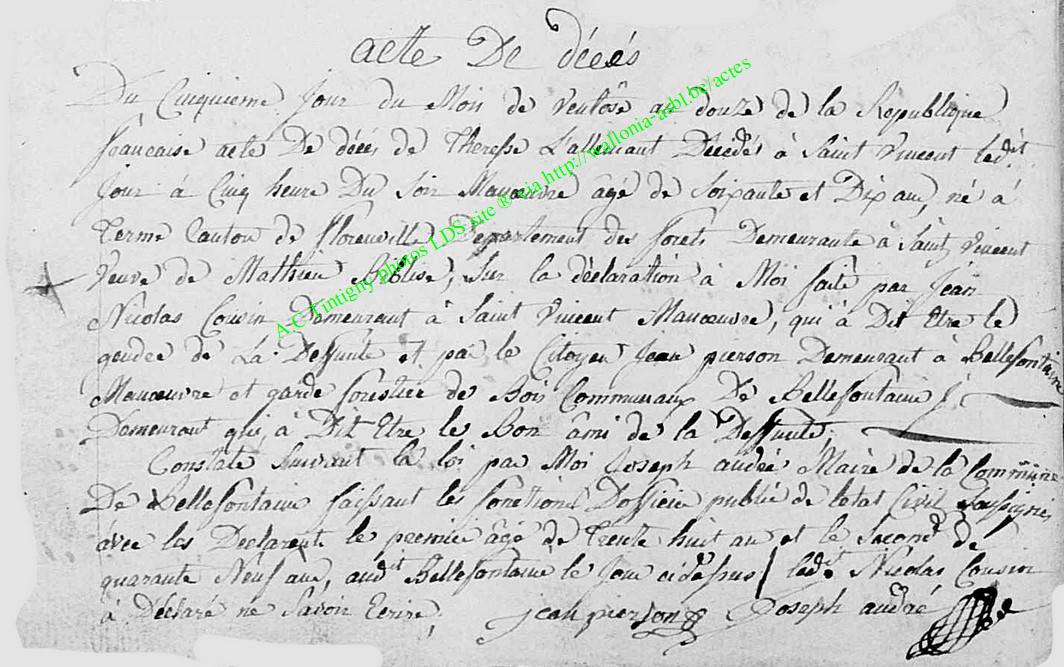 acte De décés
Du Cinquieme Jour du Mois de Ventôse an douze de la Republique
française acte De décés de Therese Lallemant Décédés à Saint Vincent ledit
Jour à Cinq heure Du Soir Manœuvre âgé de Soixante et Dix an, né à
Terme Canton de florenville Departement des forets Demeurante à Saint Vincent
Veuve de Mathieu Sur la déclaration à Moi faite par Jean
Nicolas Cousin Demeurant à Saint Vincent Manœuvre, qui à Dit Etre le
gendre de La Deffunte et par le Citoyen Jean pierson Demeurant à Bellefontaine
Manœuvre et garde forestier de Bois Communaux De Bellefontaine y
Demeurant qui à Dit Etre le Bon ami de la Deffunte,
Constaté Suivant la loi par Moi Joseph andré Maire de la Commune
De Bellefontaine faissant les fonctions Dofficier public de letat Civil Soussigné
avec les Declarants le premier âgé de Trente huit an et le Second de
quarante Neuf ans, audit Bellefontaine le Jour cidessus / ledit Nicolas Cousin
à Déclaré ne Savoir Ecrire, jean pierson Joseph andré
A-C-Tintigny photos LDS site ® asia http://wallonia-asbl.be/actes